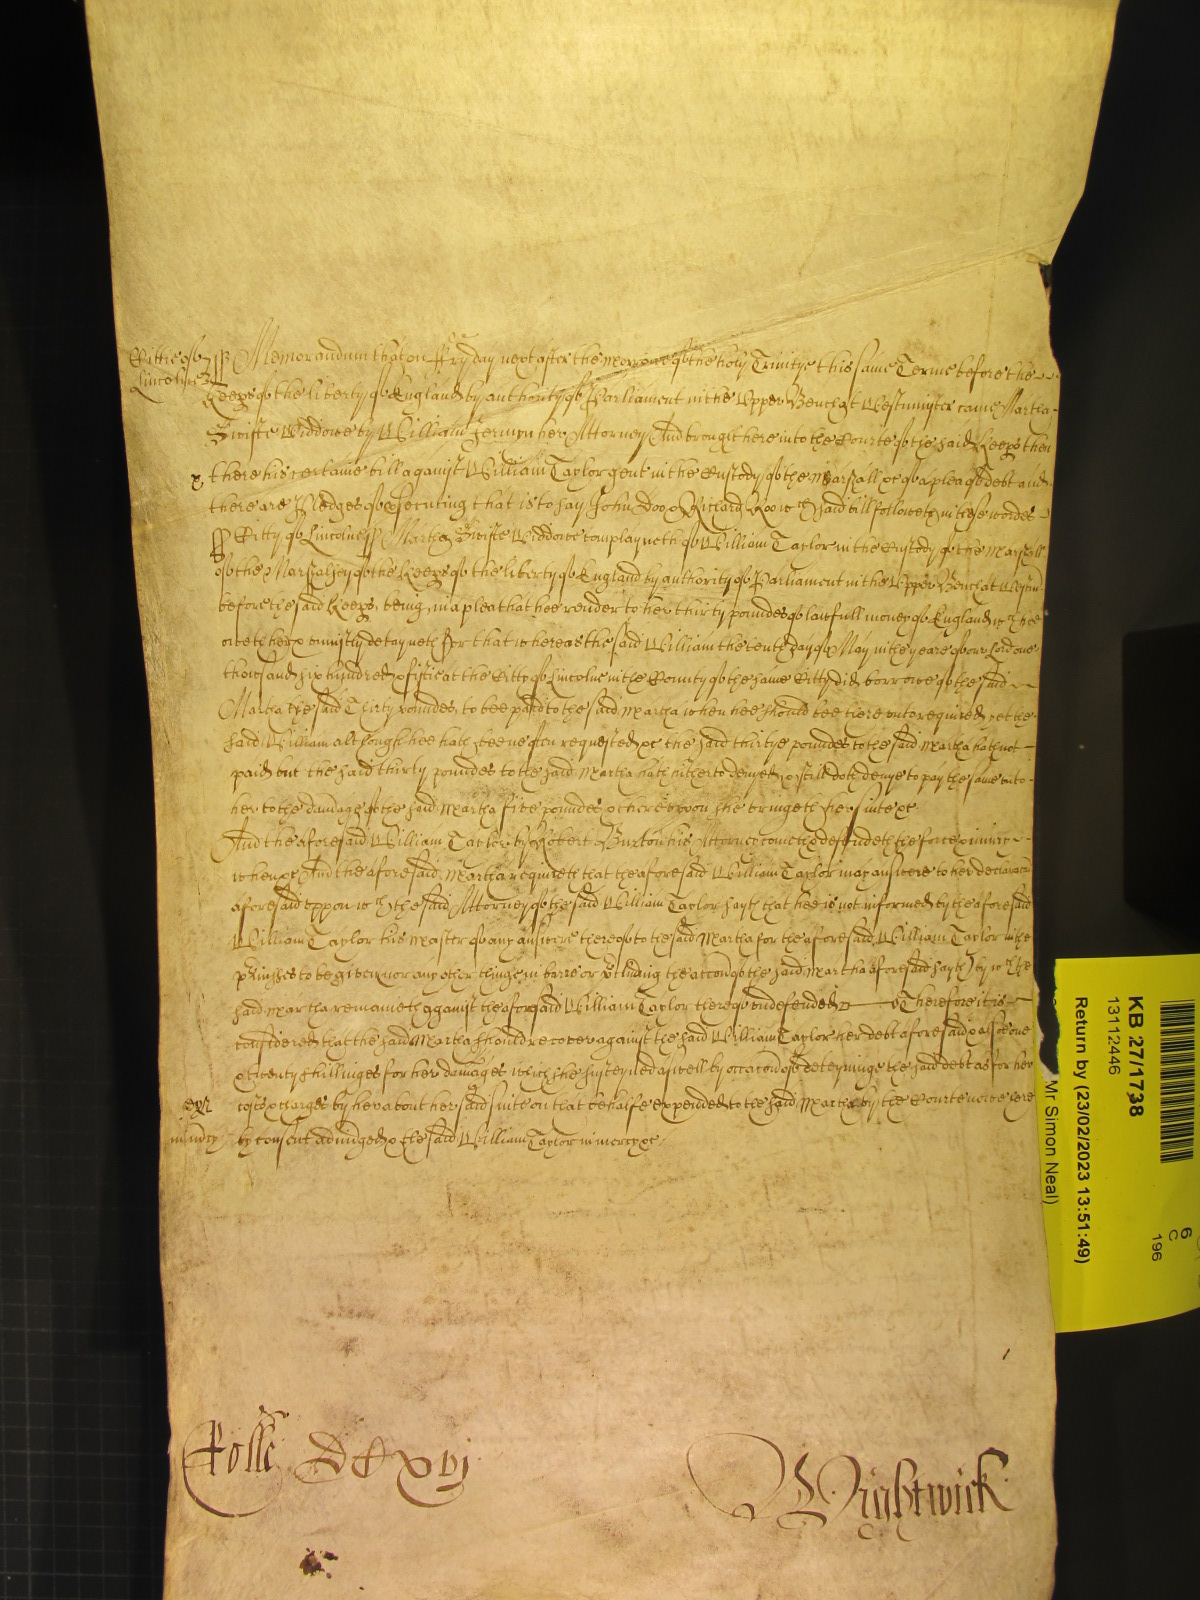 Cittie of
Lincolne
ss Memorandum that on Fryday next after the morrowe of the holy Trinitye this same Terme before the
Keeps of the liberty of England by authority of Parliament in the Upper Bench at Westminster came Martha
Swifte Widdowe by William Jermyn her Attorney And brought here into the Courte of the said Keeps then
x there his certaine bill against William Taylor gent in the Custody of the Marshall &c of a plea of debt and
there are Pledges of prosecuting that is to say John Doo & Richard Roo wch said bill followeth in these wordes
ss Citty of Lincolne ss Martha Swifte Widdowe complayneth of William Taylor in the Custody of the Marshall
of the Marshalsey of the Keeps of the liberty of England by authority of Parliament in the Upper Bench at Westm
before the said Keeps being in a plea that hee render to her thirty poundes of lawfull money of England wch hee
oweth her & uniustly detayneth For that whereas the said William the tenth day of May in the yeare of our Lord one
thousand six hundred & fiftie at the Citty of Lincolne in the County of the same Citty did borrowe of the said
Martha the said Thirty poundes to bee paid to the said Martha when hee should bee thereunto required yet the
said William although hee hath beene often requested &c the said thirtye poundes to the said Martha hath not
paid but the said thirty poundes to the said Martha hath hitherto denyed & still doth denye to pay the same unto
her to the damage of the said Martha five poundes & thereupon she bringeth her suite &c
And the aforesaid William Taylor by Robert Buxton his Attorney cometh & defendeth the force & iniury
when &c And the aforesaid Martha requireth that the aforesaid William Taylor may answere to her declaracon
aforesaid uppon wch the said Attorney of the said William Taylor sayth that hee is not informed by the aforesaid
William Taylor his Master of any answere thereof to the said Martha for the aforesaid William Taylor in the
pmisses to be given nor any other thinge in barre or Precluding the accon of the said Martha aforesaid sayth by wch the
said Martha remaineth against the aforesaid William Taylor thereof undefended Therefore it is
considered that the said Martha should recover against the said William Taylor her debt aforesaid & also one
& twenty shillinges for her damages which she susteyned aswell by occacon of deteyninge the said debt as for her
costs & charges by her about her said suite on that behalfe expended to the said Martha by the Courte nowe here
by consent adiudged & the said William Taylor in mercy &c
in mercy
Rolle DCxvj
Wightwick
KB 27/1738
13112446
Return by (23/02/2023 13:51:49)
Mr Simon Neal)
6
C
196